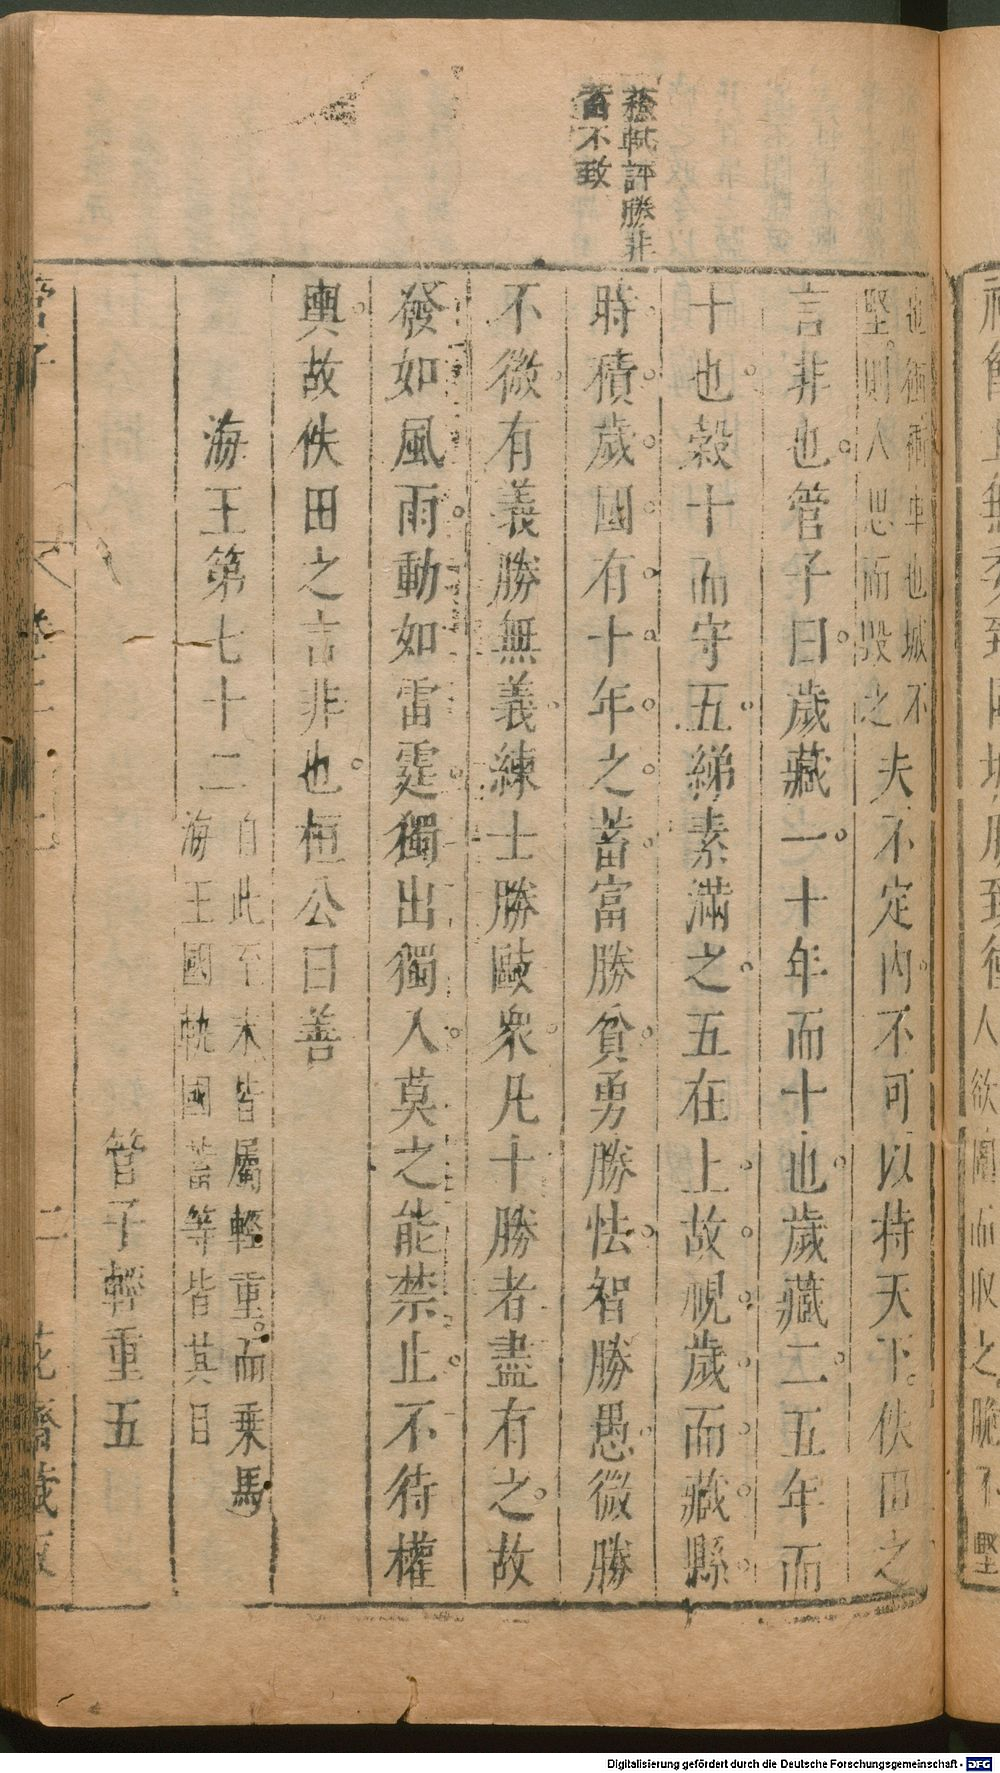 蘇軾評勝非
蓄不致
堅則人思而毀之不夫不定內不可以持天下佚田之
言非也管子曰歲藏一十年而十也歲藏二五年而
十也穀十而守五綈素滿之五在上故視歲而藏縣
時積歲國有十年之蓄富勝貧勇勝怯智勝愚微勝
不微有義勝無義練士勝敺衆凡十勝者盡有之故
發如風雨動如雷霆獨出獨入莫之能禁止不待權
輿故佚田之言非也桓公曰善
海王第七十二
自此至末皆屬輕重而乗馬
海王國軌國蓄等皆其目
管子輕重五
管子
二
花齋藏板
Digitalisierung gefördert durch die Deutsche Forschungsgemeinschaft - DFG